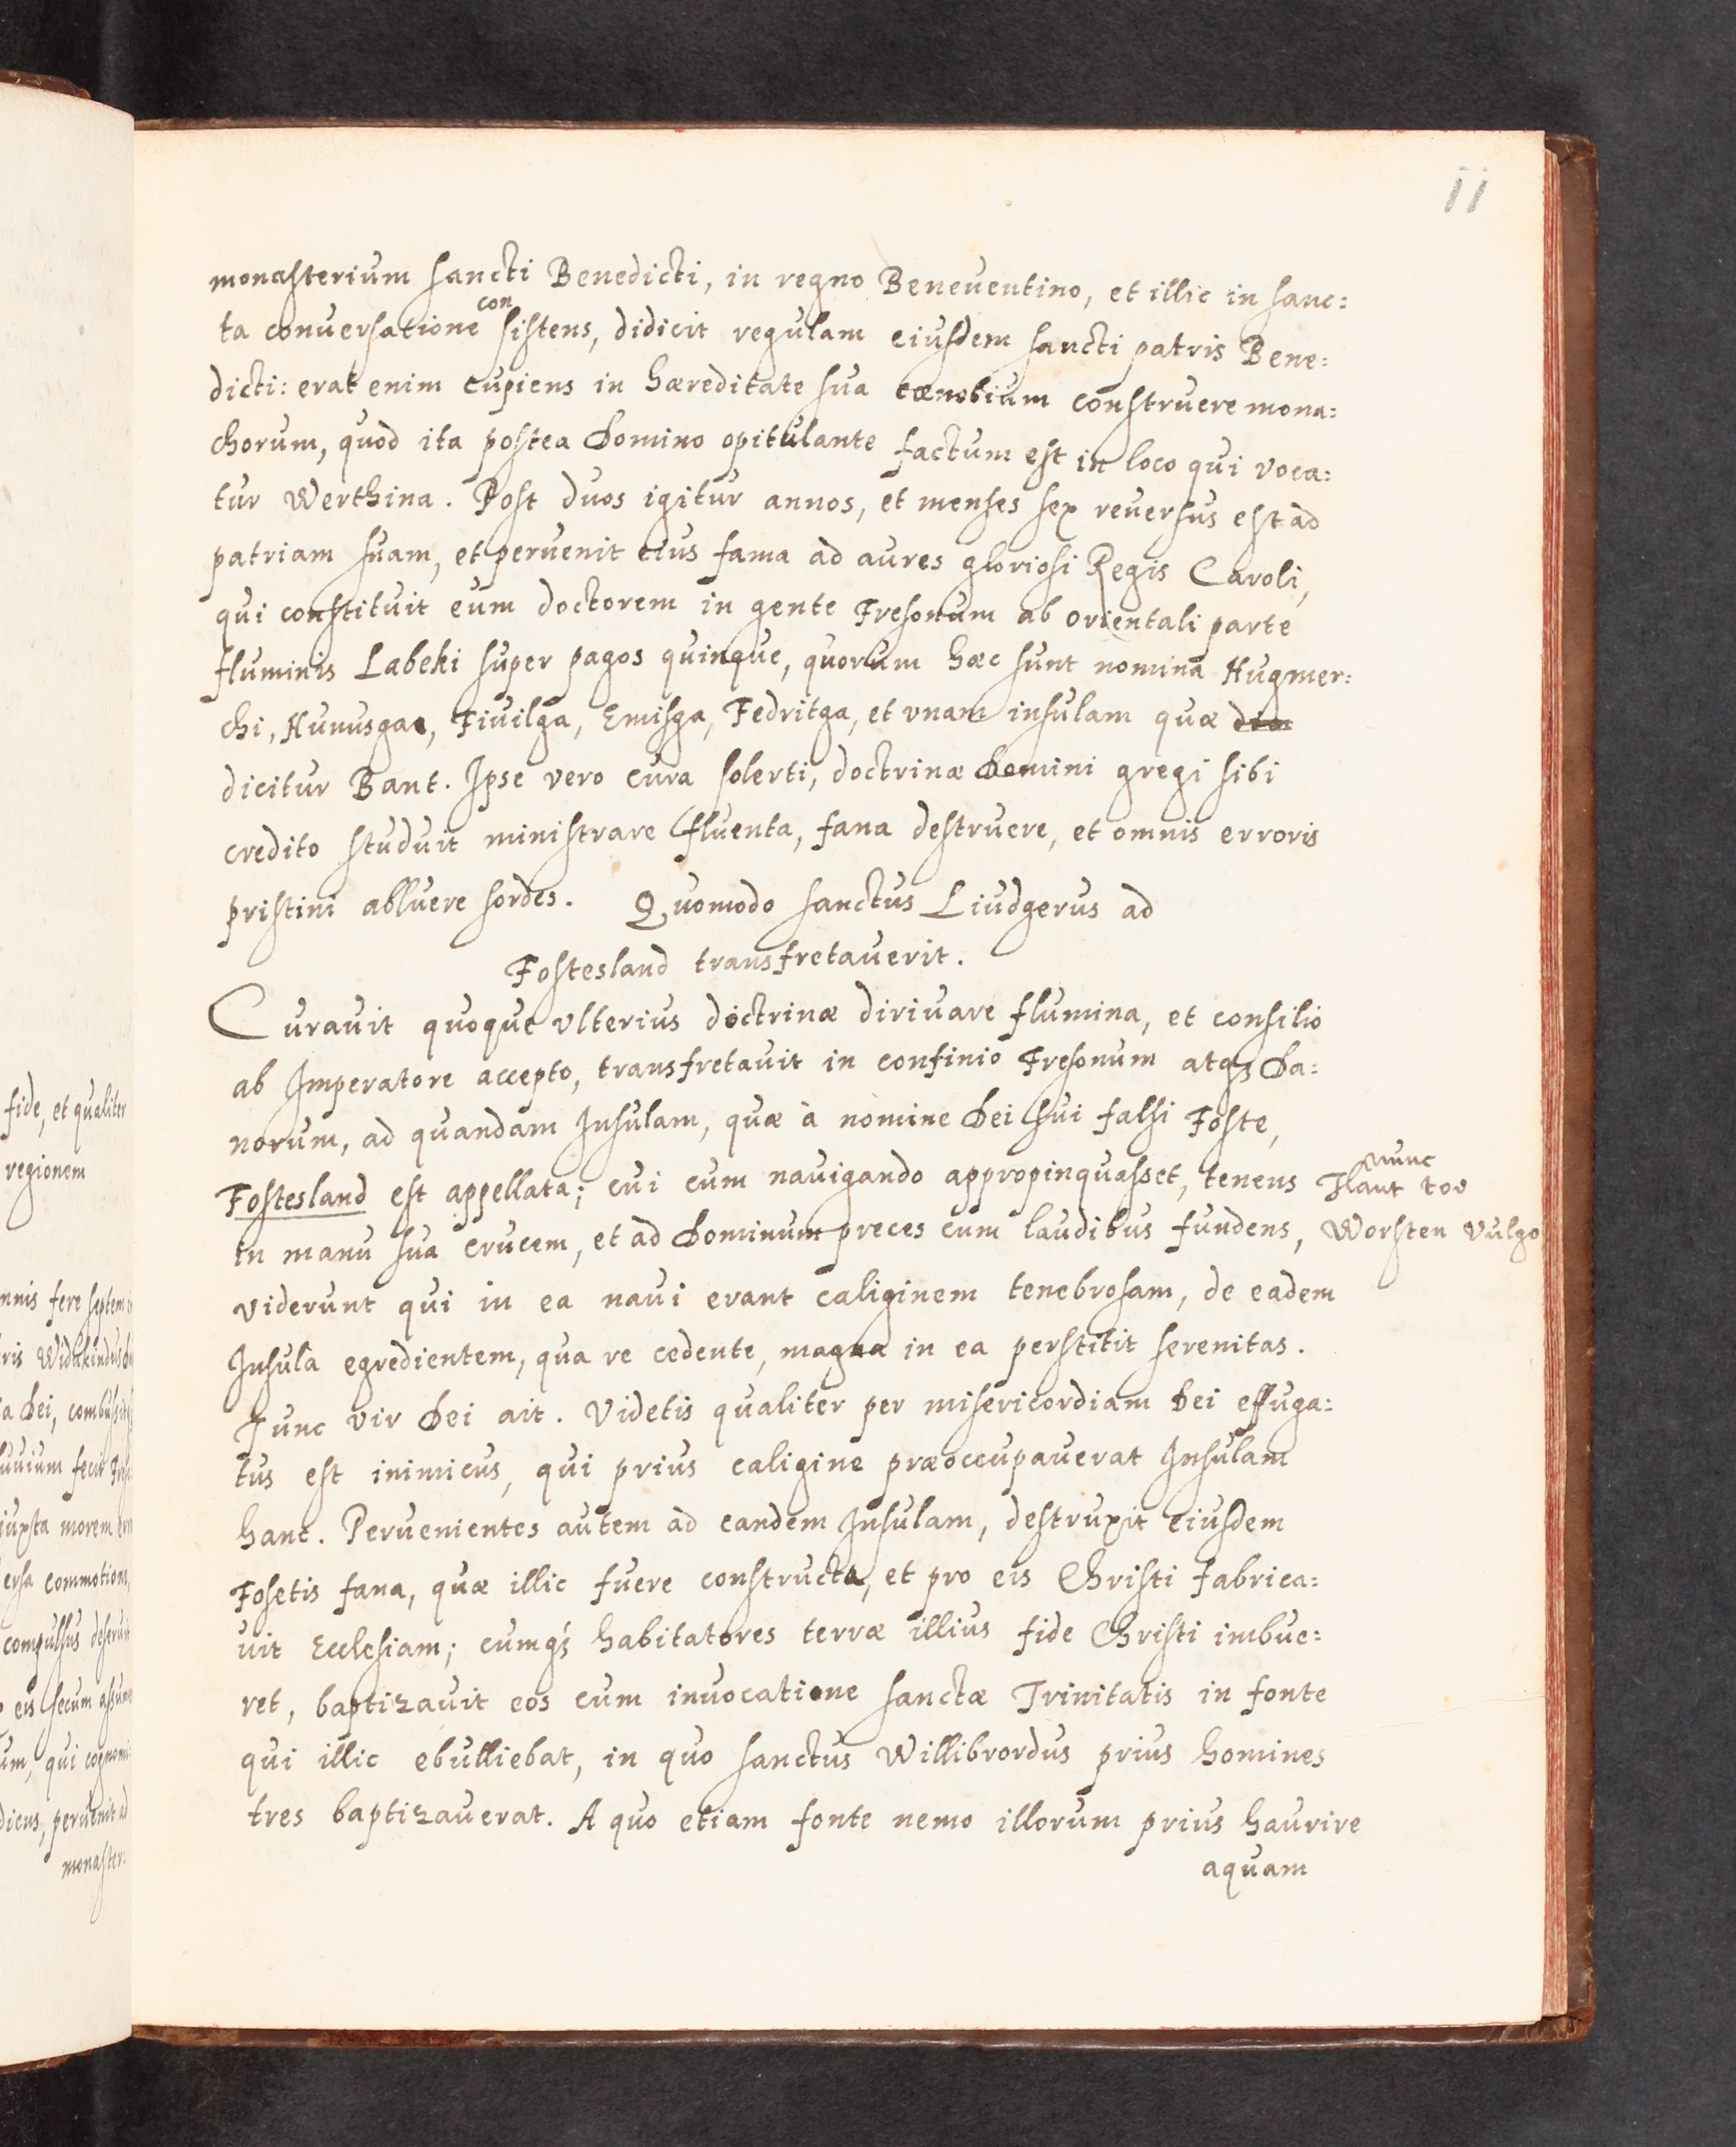 11
monasterium sancti Benedicti, in regno Beneuentino, et illic in sanc=
ta conuersatione consistens, didicit regulam eiusdem sancti patris Bene=
dicti: erat enim cupiens in hæreditate sua cœnobium construere mona=
chorum, quod ita postea Domino opitulante factum est in loco qui voca=
tur Werthina. Post duos igitur annos, et menses sex reuersus est ad
patriam suam, et peruenit eius fama ad aures gloriosi Regis Caroli,
qui constituit eum doctorem in gente Fresonum ab orientali parte
fluminis Labeki super pagos quinque, quorum hæc sunt nomina Hugmer=
chi, Hunusga, Fiuilga, Emisga, Fedritga, et vnam insulam quæ
dicitur Bant. Ipse vero cura solerti, doctrinæ Domini gregi sibi
credito studuit ministrare fluenta, fana destruere, et omnis erroris
pristini abluere sordes. Quomodo sanctus Liudgerus ad
Fostesland transfretauerit.
Curauit quoque vlterius doctrinæ diriuare flumina, et consilio
ab Imperatore accepto, transfretauit in confinio Fresonum atqȝ Da=
norum, ad quandam Insulam, quæ à nomine Dei sui falsi Foste,
Fostesland est appellata; cui cum nauigando appropinquasset, tenens
nunc
Flant toe
Worsten vulgo
in manu sua crucem, et ad Dominum preces cum laudibus fundens,
viderunt qui in ea naui erant caliginem tenebrosam, de eadem
Insula egredientem, qua re cedente, magna in ea perstitit serenitas.
Tunc vir Dei ait. Videtis qualiter per misericordiam Dei effuga=
tus est inimicus, qui prius caligine præoccupauerat Insulam
hanc. Peruenientes autem ad eandem Insulam, destruxit eiusdem
Fosetis fana, quæ illic fuere constructa, et pro eis Christi fabrica=
uit Ecclesiam; cumqȝ habitatores terræ illius fide Christi imbue=
ret, baptizauit eos cum inuocatione sanctæ Trinitatis in fonte
qui illic ebulliebat, in quo sanctus Willibrordus prius homines
tres baptizauerat. A quo etiam fonte nemo illorum prius haurire
aquam
fide, et qualiter
regionem